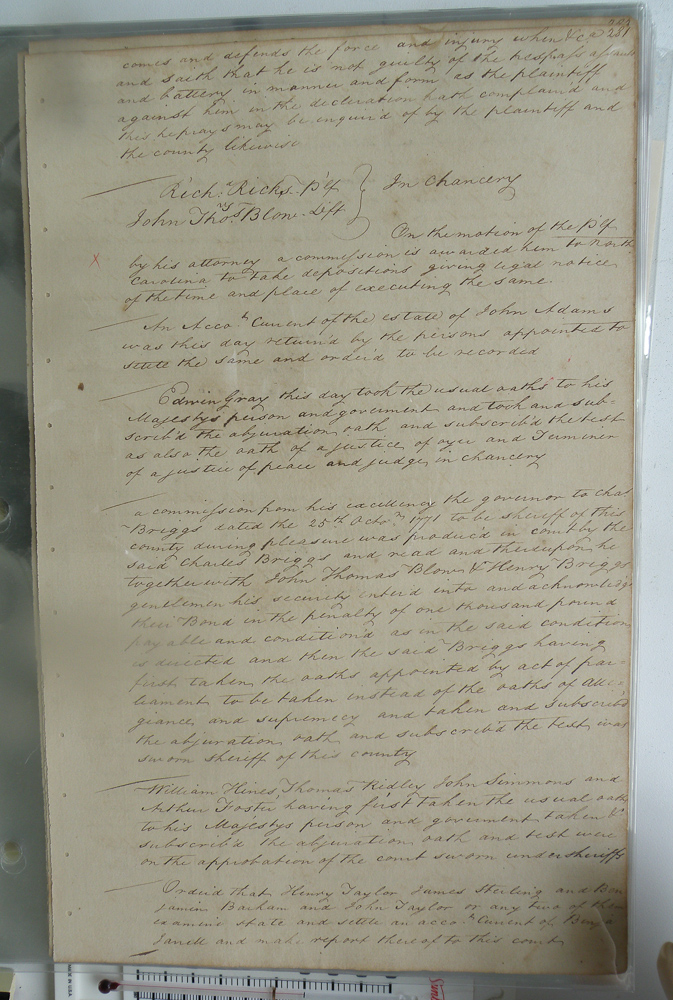 281
comes and defends the force and injury when &ca
and saith that he is not guilty of the trespass assault
and battery in manner and form as the plaintiff
against him in the declaration hath complain'd and
this he prays may be enquir'd of by the plaintiff and
the county likewise
Richd. Ricks Plf
John Thos. Blow Deft
In Chancery
On the motion of the Plf
by his attorney a commission is awarded him to North
Carolina to take depositions giving legal notice
of the time and place of executing the same
An Accot. Current of the estate of John Adams
was this day return'd by the persons appointed to
settle the same and order'd to be recorded
Edwin Gray this day took the usual oaths to his
Majestys person and government and took and sub-
scrib'd the abjuration oath and subscrib'd the test
as also the oath of a justice of oyer and Terminer
of a justice of peace and judge in chancery
a commission from his excellency the governor to Chas.
Briggs dated the 25th Octor. 1771 to be sheriff of this
county during pleasure was produc'd in court by the
said Charles Briggs and read and thereupon he
together with John Thomas Blow & Henry Briggs
gentlemen his security enter'd into and acknowledg'd
their Bond in the penalty of one thousand pound
payable and condition'd as in the said condition
is directed and then the said Briggs having
first taken the oaths appointed by act of par-
liament to be taken instead of the oaths of Alle-
giance and supremecy and taken and subscrib'd
the abjuration oath and subscrib'd the test was
sworn sheriff of this county
William Hines Thomas Ridley John Simmons and
Arthur Foster having first taken the usual oath
to his Majestys person and government taken &
subscrib'd the abjuration oath and test were
on the approbation of the court sworn under sheriffs
Order'd that Henry Taylor James Sterling and Ben
jamin Barham and John Taylor or any two of them
examine state and settle an accot. Current of Benja
Janell and make report thereof to this court